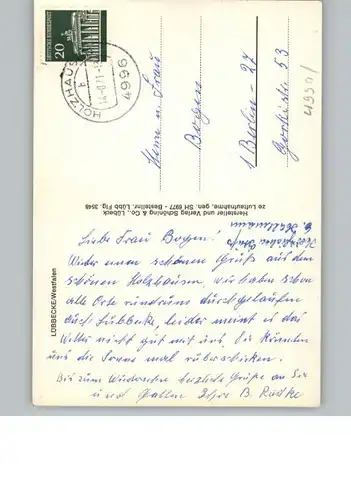 DEUTSCHE BUNDESPOST
20
HOLZHAUS
4996
Herrn u. Frau
Bogen
1 Berlin - 27
53
49301
Hersteller und Verlag Schöning & Co., Lübeck
zo Luftaufnahme, gen. SH 6977 - Bestellnr. Lübb Flg. 3548
LÜBBECKE/Westfalen
Liebe Frau Bogen!
Wieder einen schönen Gruß aus dem
schönen Holzhausen, wir haben schon
alle Orte rundrum durchgelaufen
auch Lübbecke, leider meint es das
Wetter nicht gut mit uns. Sie könnten
uns die Sonne mal rüberschicken.
Bis zum Wiedersehn herzliche Grüße an Sie
und Gatten Ihre B. Radke